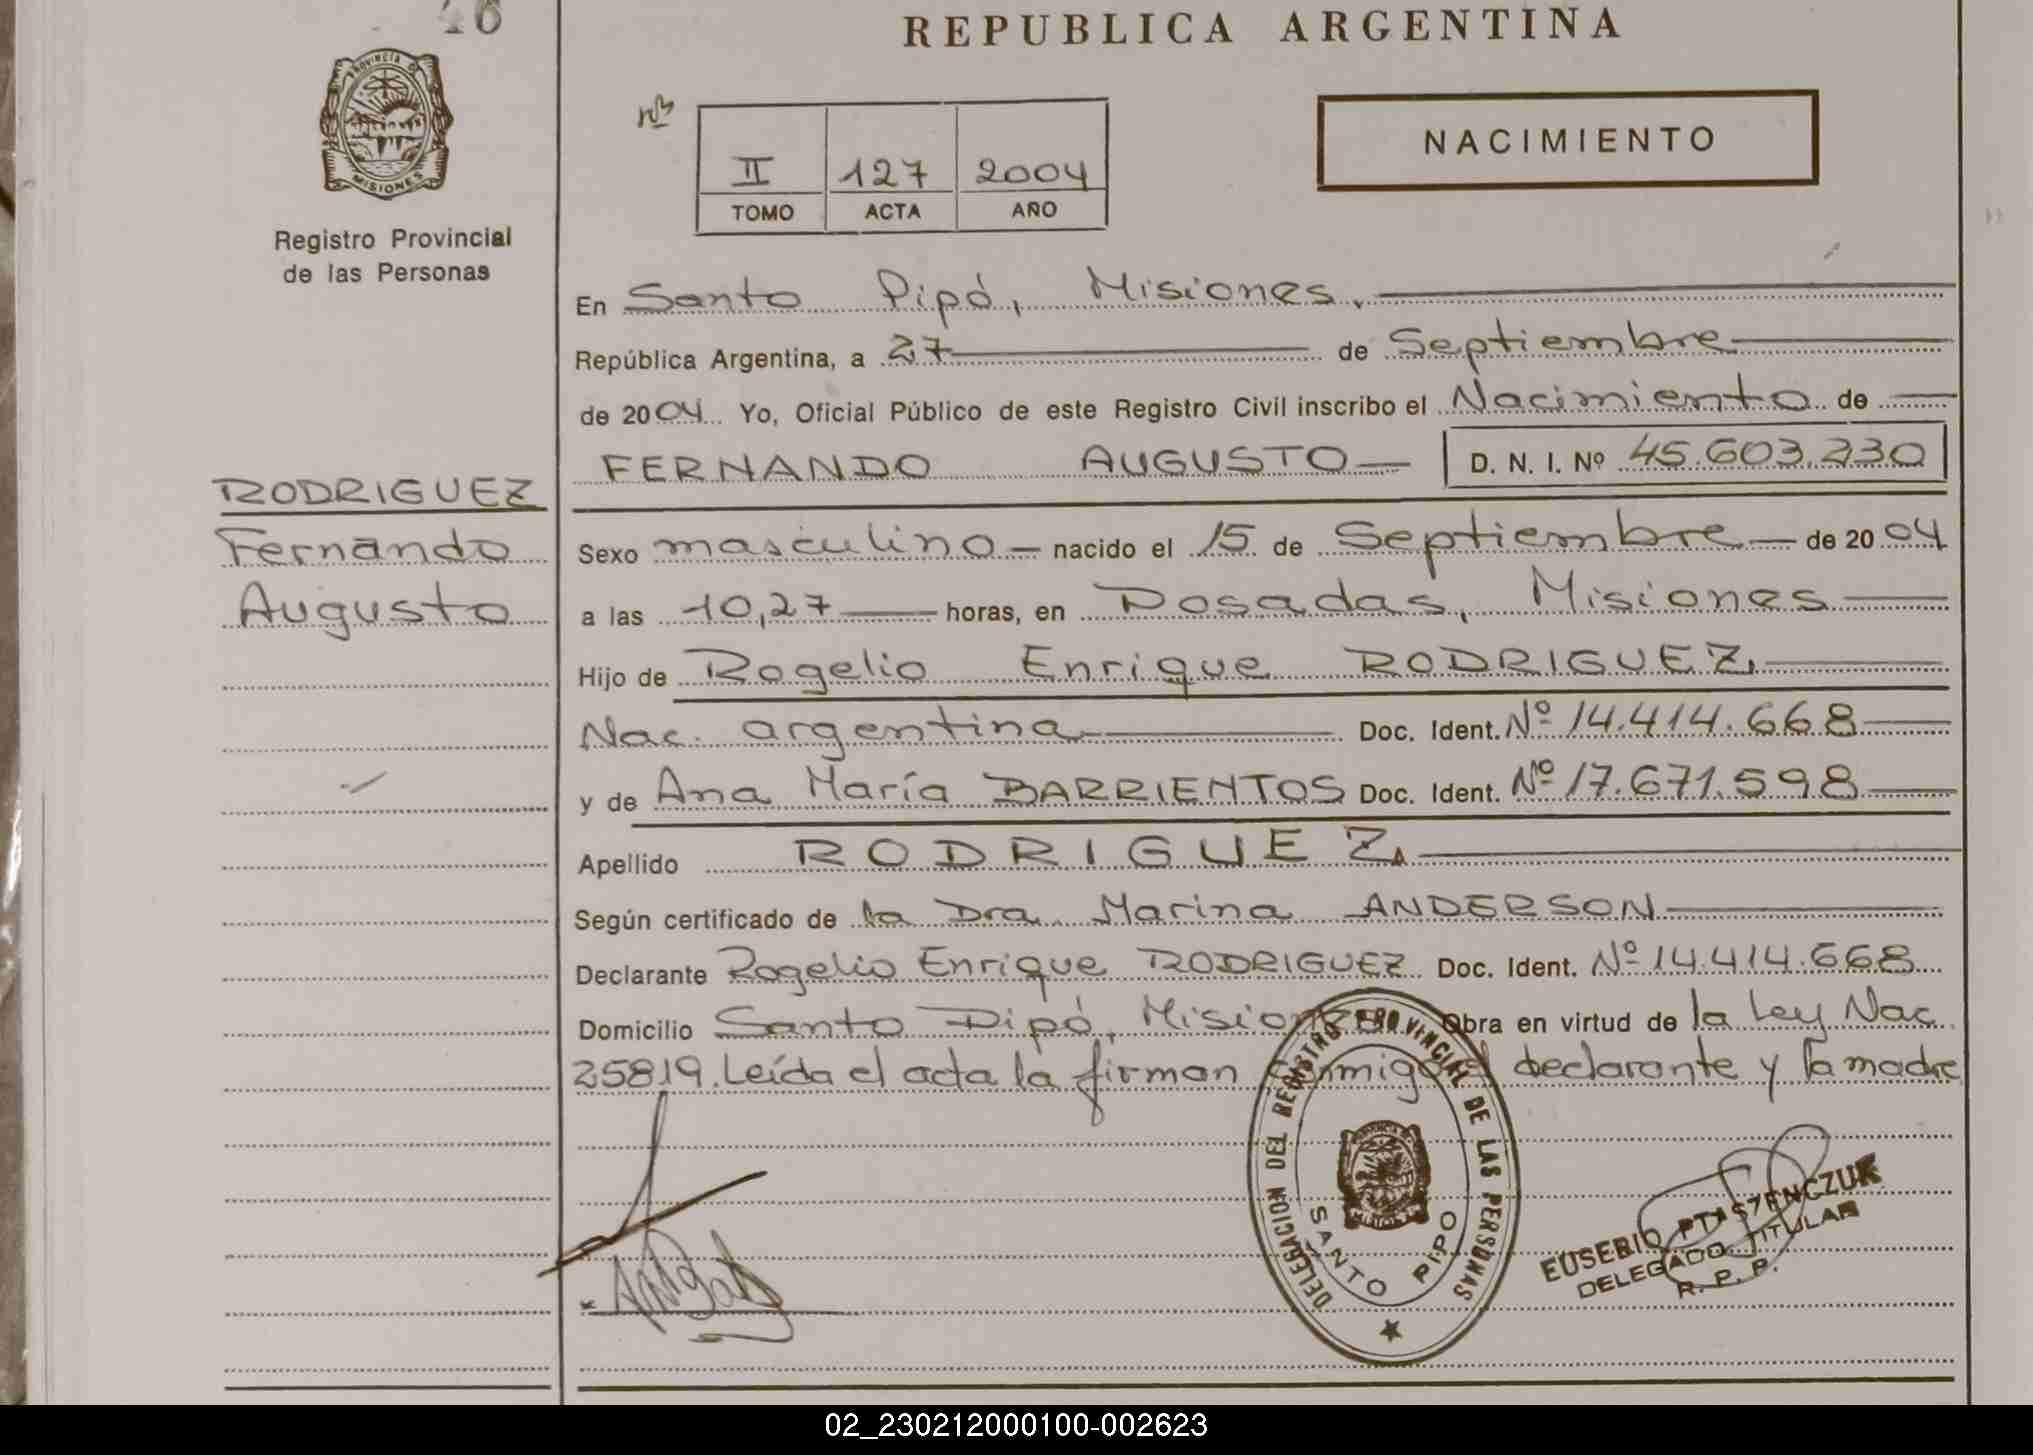 REPUBLICA ARGENTINA
PROVINCIA DE MISIONES
Registro Provincial
de las Personas
Nº
II 127 2004
TOMO ACTA AÑO
NACIMIENTO
En Santo Pipó, Misiones,
República Argentina, a 27 de Septiembre
de 2004 Yo, Oficial Público de este Registro Civil inscribo el Nacimiento de
FERNANDO AUGUSTO D. N. I. Nº 45.603.230
RODRIGUEZ
Fernando
Augusto
Sexo masculino nacido el 15 de Septiembre de 2004
a las 10,27 horas, en Posadas, Misiones
Hijo de Rogelio Enrique RODRIGUEZ
Nac. argentina Doc. Ident. Nº 14.414.668
y de Ana María BARRIENTOS Doc. Ident. Nº 17.671.598
Apellido RODRIGUEZ
Según certificado de la Dra. Marina ANDERSON
Declarante Rogelio Enrique RODRIGUEZ Doc. Ident. Nº 14.414.668
Domicilio Santo Pipó, Misiones Obra en virtud de la Ley Nac.
25819. Leída el acta la firman conmigo el declarante y la madre
DELEGACION DEL REGISTRO PROVINCIAL DE LAS PERSONAS
SANTO PIPO
EUSEBIO
DELEGADO TITULAR
R. P. P.
02_230212000100-002623